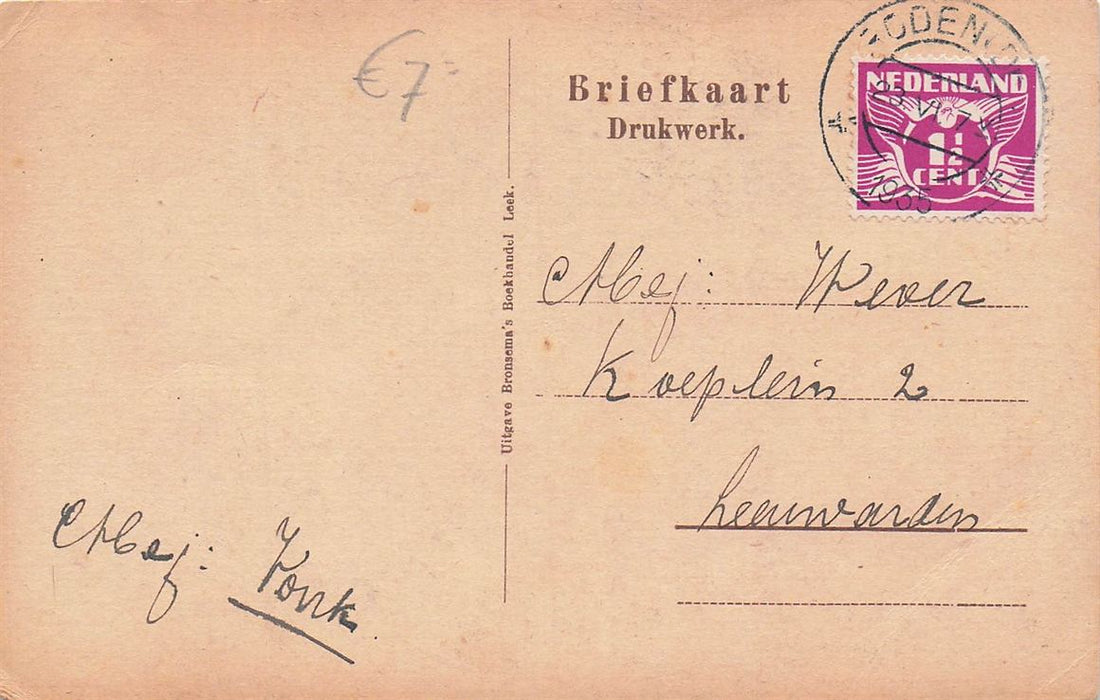 € 7=
Briefkaart
Drukwerk.
NEDERLAND
1½
CENT
23. VI. 7
1935
Uitgave Bronsema's Boekhandel Leek.
Mej: Wever
Koeplein 2
Leeuwarden
Mej: Vonk